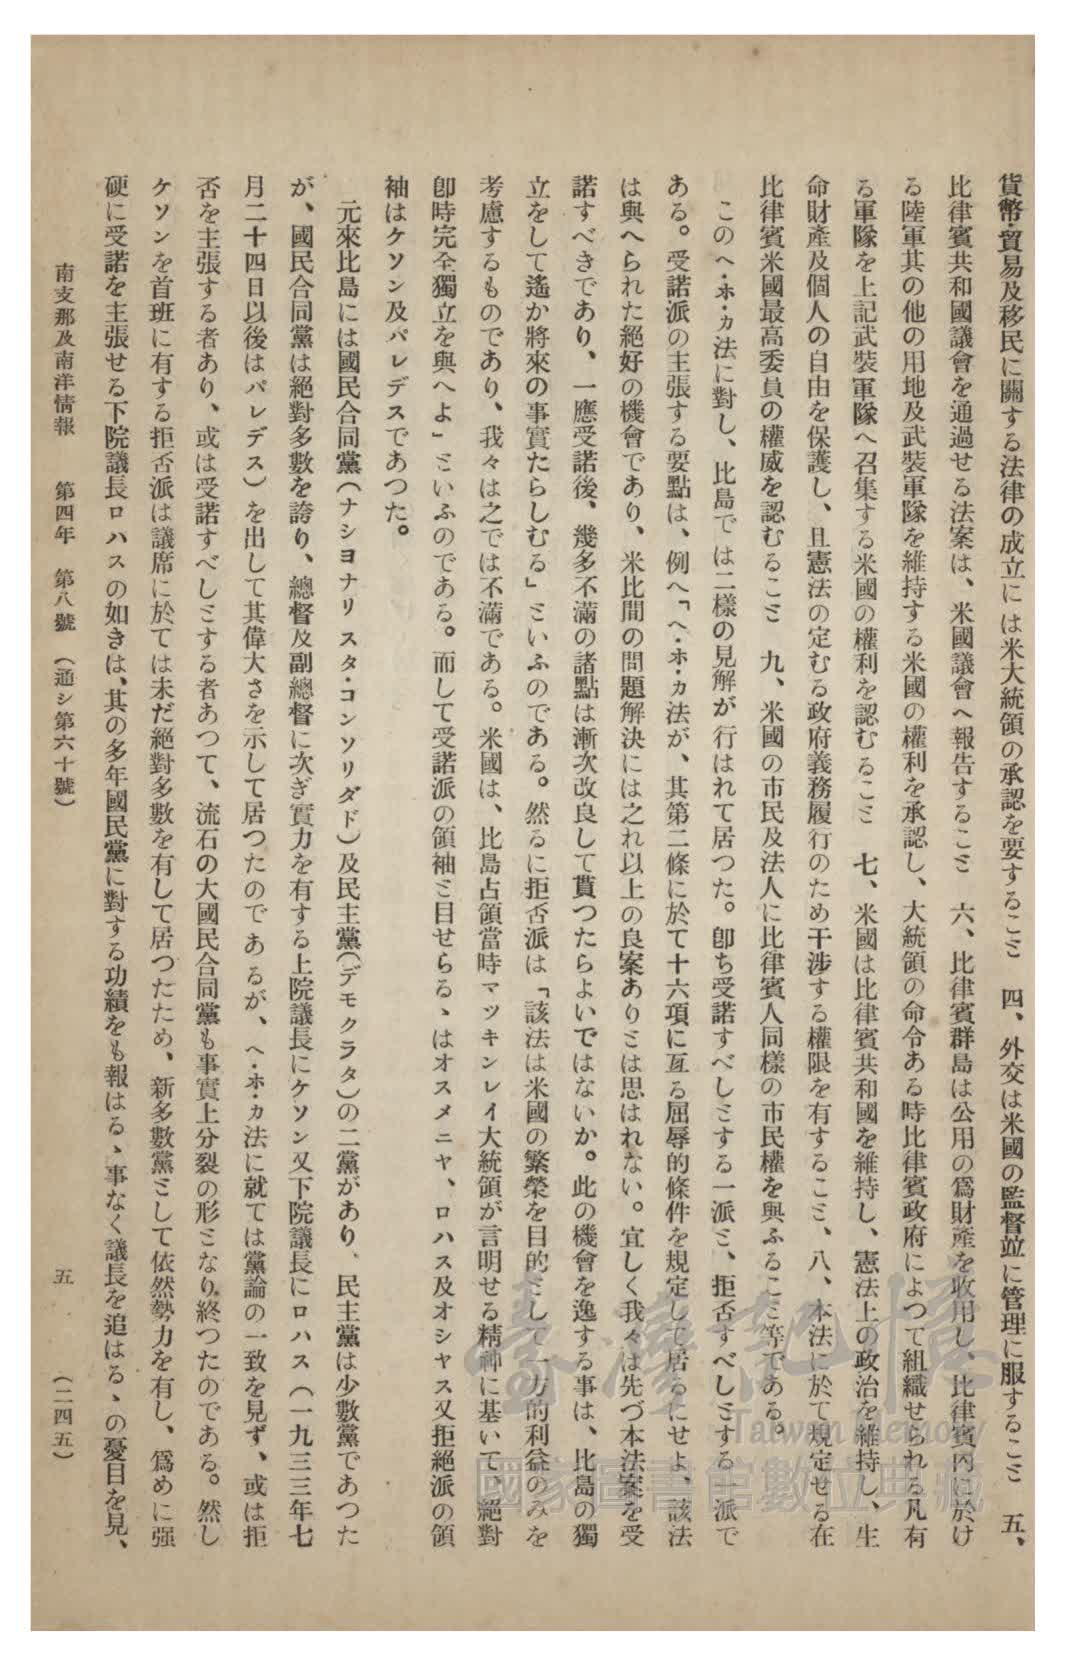 貨幣・貿易及移民に關する法律の成立には米大統領の承認を要すること　四、外交は米國の監督竝に管理に服すること　五、
比律賓共和國議會を通過せる法案は、米國議會へ報告すること　六、比律賓群島は公用の爲財產を收用し、比律賓內に於け
る陸軍其の他の用地及武裝軍隊を維持する米國の權利を承認し、大統領の命令ある時比律賓政府によつて組織せられる凡有
る軍隊を上記武裝軍隊へ召集する米國の權利を認むること　七、米國は比律賓共和國を維持し、憲法上の政治を維持し、生
命財產及個人の自由を保護し、且憲法の定むる政府義務履行のため干涉する權限を有すること、八、本法に於て規定せる在
比律賓米國最高委員の權威を認むること　九、米國の市民及法人に比律賓人同樣の市民權を與ふること等である。
このヘ・ホ・カ法に對し、比島では二樣の見解が行はれて居つた。卽ち受諾すべしとする一派と、拒否すべしとする一派で
ある。受諾派の主張する要點は、例へ「ヘ・ホ・カ法が、其第二條に於て十六項に亙る屈辱的條件を規定して居るにせよ、該法
は與へられた絕好の機會であり、米比間の問題解決には之れ以上の良案ありとは思はれない。宜しく我々は先づ本法案を受
諾すべきであり、一應受諾後、幾多不滿の諸點は漸次改良して貰つたらよいではないか。此の機會を逸する事は、比島の獨
立をして遙か將來の事實たらしむる」といふのである。然るに拒否派は「該法は米國の繁榮を目的として一方的利益のみを
考慮するものであり、我々は之では不滿である。米國は、比島占領當時マツキンレイ大統領が言明せる精神に基いて、絕對
卽時完全獨立を與へよ」といふのである。而して受諾派の領袖と目せらるゝはオスメニヤ、ロハス及オシヤス又拒絕派の領
袖はケソン及パレデスであつた。
元來比島には國民合同黨（ナシヨナリスタ・コンソリダド）及民主黨（デモクラタ）の二黨があり、民主黨は少數黨であつた
が、國民合同黨は絕對多數を誇り、總督及副總督に次ぎ實力を有する上院議長にケソン又下院議長にロハス（一九三三年七
月二十四日以後はパレデス）を出して其偉大さを示して居つたのであるが、ヘ・ホ・カ法に就ては黨論の一致を見ず、或は拒
否を主張する者あり、或は受諾すべしとする者あつて、流石の大國民合同黨も事實上分裂の形となり終つたのである。然し
ケソンを首班に有する拒否派は議席に於ては未だ絕對多數を有して居つたため、新多數黨として依然勢力を有し、爲めに强
硬に受諾を主張せる下院議長ロハスの如きは、其の多年國民黨に對する功績をも報はるゝ事なく議長を追はるゝの憂目を見、
南支那及南洋情報　第四年　第八號　（通シ第六十號）　五　（二四五）
臺灣記憶
Taiwan Memory
國家圖書館數位典藏